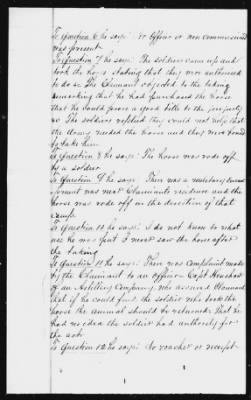 To Question 6 he says: No Officer or non commissioned
was present.
To Question 7 he says: The soldier came up and
took the horse stating that they were authorized
to do so. The Claimant objected to the taking
remarking that he had purchased the horse
that he could prove a good title to the property
&c. The soldiers replied they could not help that
the army needed the horse and they were bound
to take him.
To Question 8 he says: The horse was rode off
by a soldier.
To Question 9 he says: There was a military encamp
ment was near Claimants residence and the
horse was rode off in the direction of that
camp.
To Question 10 he says: I do not know to what
use he was put I never saw the horse after
the taking.
To Question 11 he says: There was complaint made
by the Claimant to an officer Capt
of an Artillery Company who assured Claimant
that if he could find the soldier who took the
horse the animal should be returned. That he
had no idea the soldier had authority for
the act.
To Question 12 he says: No voucher or receipt